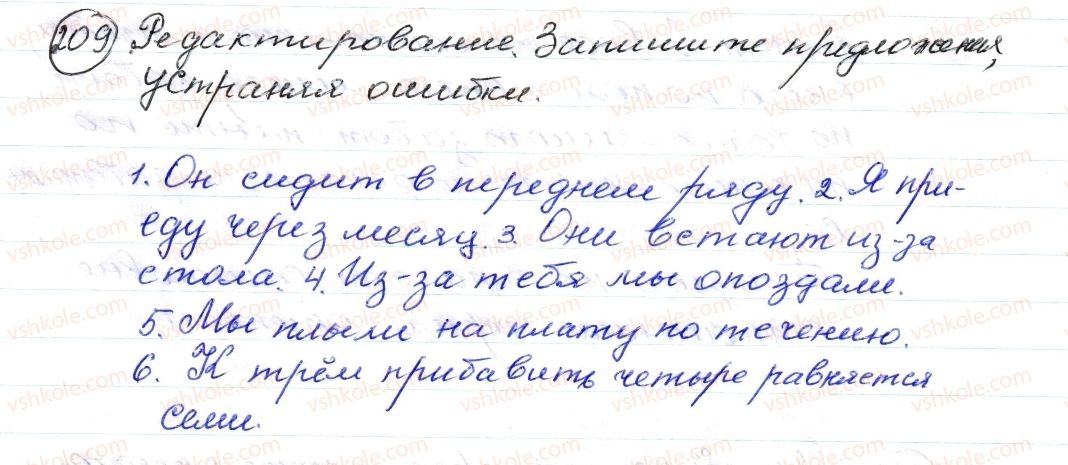 209 Редактирование. Запишите предложения,
устраняя ошибки.
1. Он сидит в переднем ряду. 2. Я при-
еду через месяц. 3. Они встают из-за
стола. 4. Из-за тебя мы опоздали.
5. Мы плыли на плоту по течению.
6. К трём прибавить четыре равняется
семи.